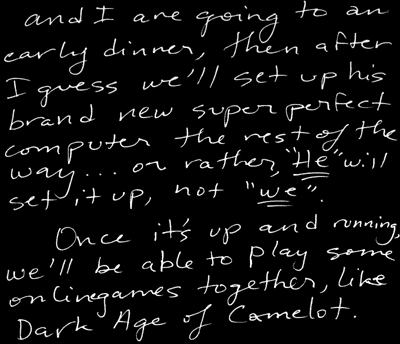 and I are going to an
early dinner, then after
I guess we'll set up his
brand new super perfect
computer the rest of the
way... or rather, "He" will
set it up, not "we".
Once it's up and running,
we'll be able to play some
onlinegames together, like
Dark Age of Camelot.